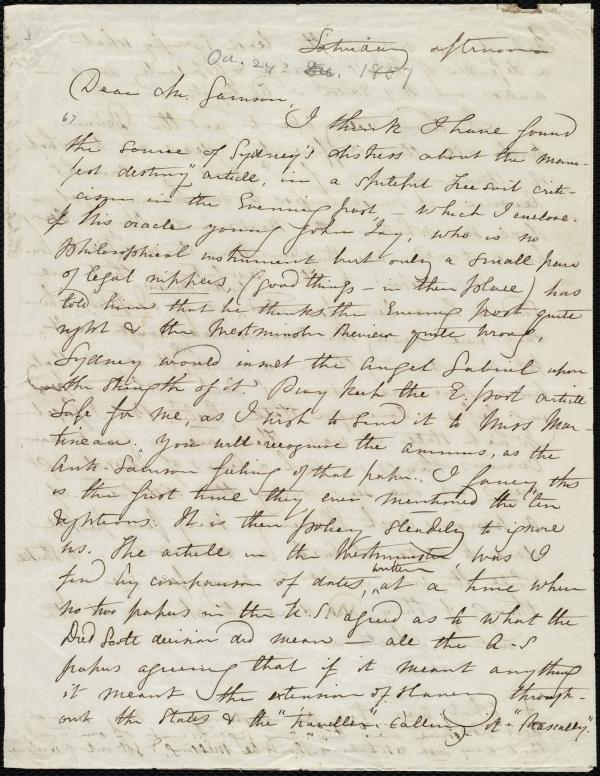 Saturday afternoon
Oct. 24? 1857
Dear Mr. Garrison,
I think I have found
the source of Sydney's distress about the "mani-
fest destiny" article, in a spiteful Free soil criti-
cism in the Evening post, – which I enclose.
If this oracle young John Jay, who is no
philosophical instrument but only a small pair
of legal nippers, (good things – in their place) has
told him that he thinks the Evening post quite
right & the Westminster Review quite wrong,
Sydney would insult the Angel Gabriel upon
the strength of it. Pray keep the E. post article
safe for me, as I wish to send it to Miss Mar-
tineau. You will recognise the animus, as the
Anti-Garrison feeling of that paper. I fancy this
is the first time they ever mentioned the
. It is their policy steadily to ignore
us. The article in the Westminster, was I
find by comparison of dates, written at a time when
no two papers in the U.S agreed as to what the
Dred Scott decision did mean – all the A-S
papers agreeing that if it meant anything
it meant the extension of slavery through-
out the States & the "traveller" calling it "Rascally".